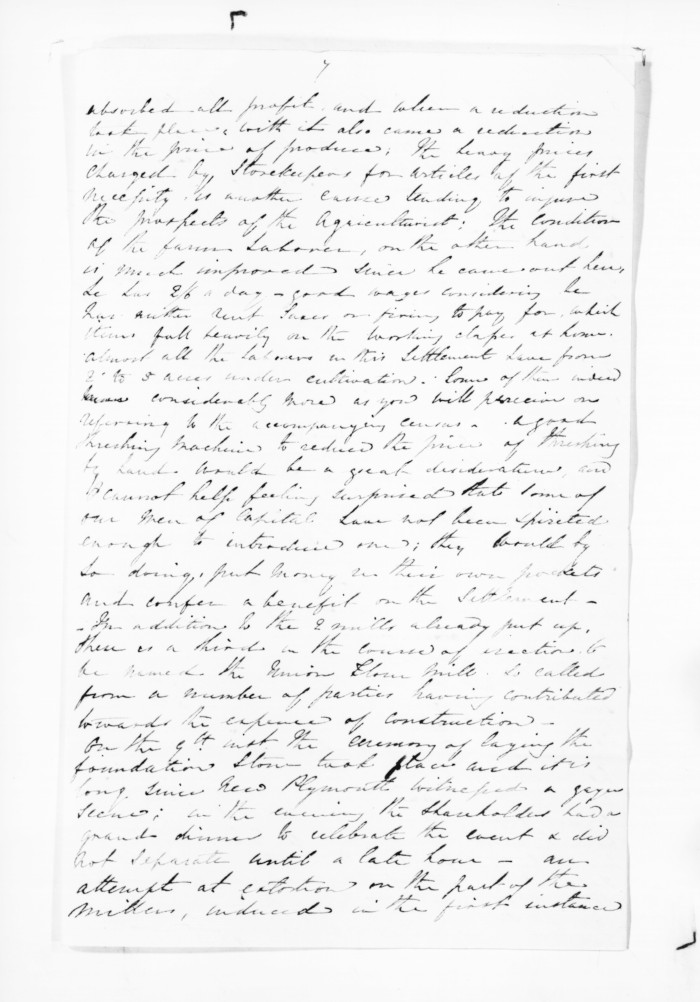 7
absorbed all profit. and when a reduction
took place, with it also came a reduction
in the price of produce; The heavy prices
charged by Storekeepers for articles of the first
necessity is another cause tending to injure
the prospects of the Agriculturist; The condition
of the farm Laborer, on the other hand
is much improved since he came out here,
he has 2/6 a day - good wages considering he
has neither rent taxes or firing to pay for, which
items fall heavily on the working classes at home.
almost all the Laborers in this Settlement have from
2 to 5 acres under cultivation. Some of them indeed
have considerably more as you will perceive on
referring to the accompanying census - a good
threshing machine to reduce the price of threshing
by hand would be a great desideratum, and
I cannot help feeling surprised that some of
our men of Capital have not been spirited
enough to introduce one; they would by
so doing, put money in their own pockets
and confer a benefit on the Settlement -
- In addition to the 2 mills already put up,
there is a third in the course of erection to
be named the Union Flour Mill. so called
from a number of parties having contributed
towards the expence of construction -
On the 9th inst the ceremony of laying the
foundation Stone took place and it is
long since New Plymouth witnessed a gayer
scene; in the evening the Shareholders had a
grand dinner to celebrate the event & did
not separate until a late hour - an
attempt at extortion on the part of the
Millers, induced in the first instance